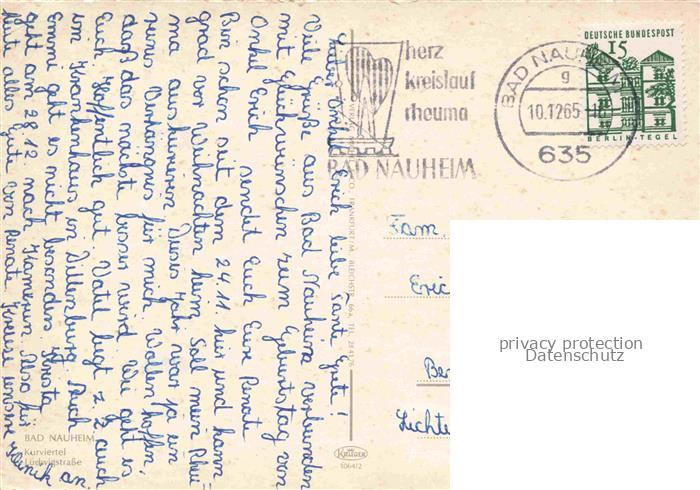 Lieber Onkel Erich, liebe Tante Grete!
Viele Grüße aus Bad Nauheim verbunden
mit Glückwünschen zum Geburtstag von
Onkel Erich sendet Euch Eure Renate
Bin schon seit dem 24.11. hier und kann
grad vor Weihnachten heim. Soll mein Rheu=
ma auskurieren. Dieses Jahr war ja ein
Verhängnis für mich. Wollen hoffen,
daß das nächste besser wird. Wie geht es
Euch, hoffentlich gut. Vatel liegt z. Z. auch
im Krankenhaus in Dillenburg. Auch
Emmi geht es nicht besonders.
geht am 28.12. nach Also für
heute alles Gute von Renate.
herz
kreislauf
rheuma
BAD NAUHEIM
BAD NAUHEIM
g
10.12.65
635
DEUTSCHE BUNDESPOST
15
BERLIN-TEGEL
Fam.
Eric
Ber
Lichte
privacy protection
Datenschutz
FRANKFURT/M. BLEICHSTR.
BAD NAUHEIM
Kurviertel
Ludwigstraße
KRÜGER
506412